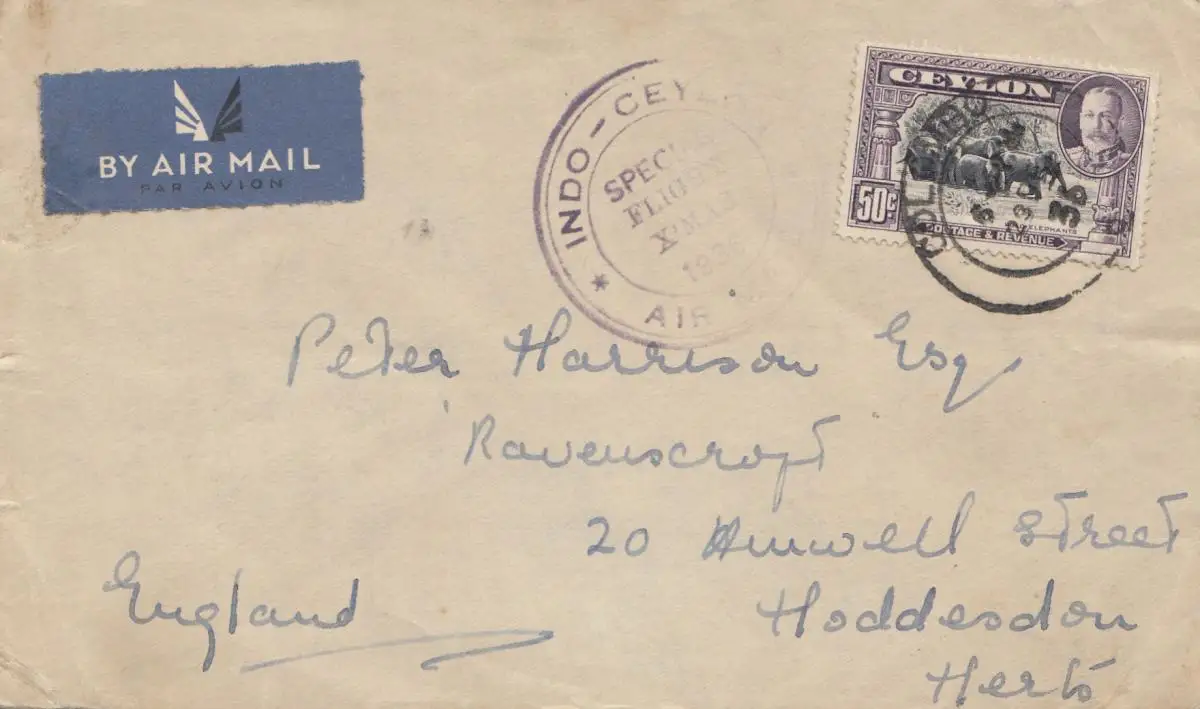 BY AIR MAIL
PAR AVION
INDO - CEYLON
SPECIAL
FLIGHT
X'MAS
1936
AIR
CEYLON
50c
ELEPHANTS
POSTAGE & REVENUE
COLOMBO
23
36
Peter Harrison Esq
Ravenscroft
20 Street
Hoddesdon
Herts
England